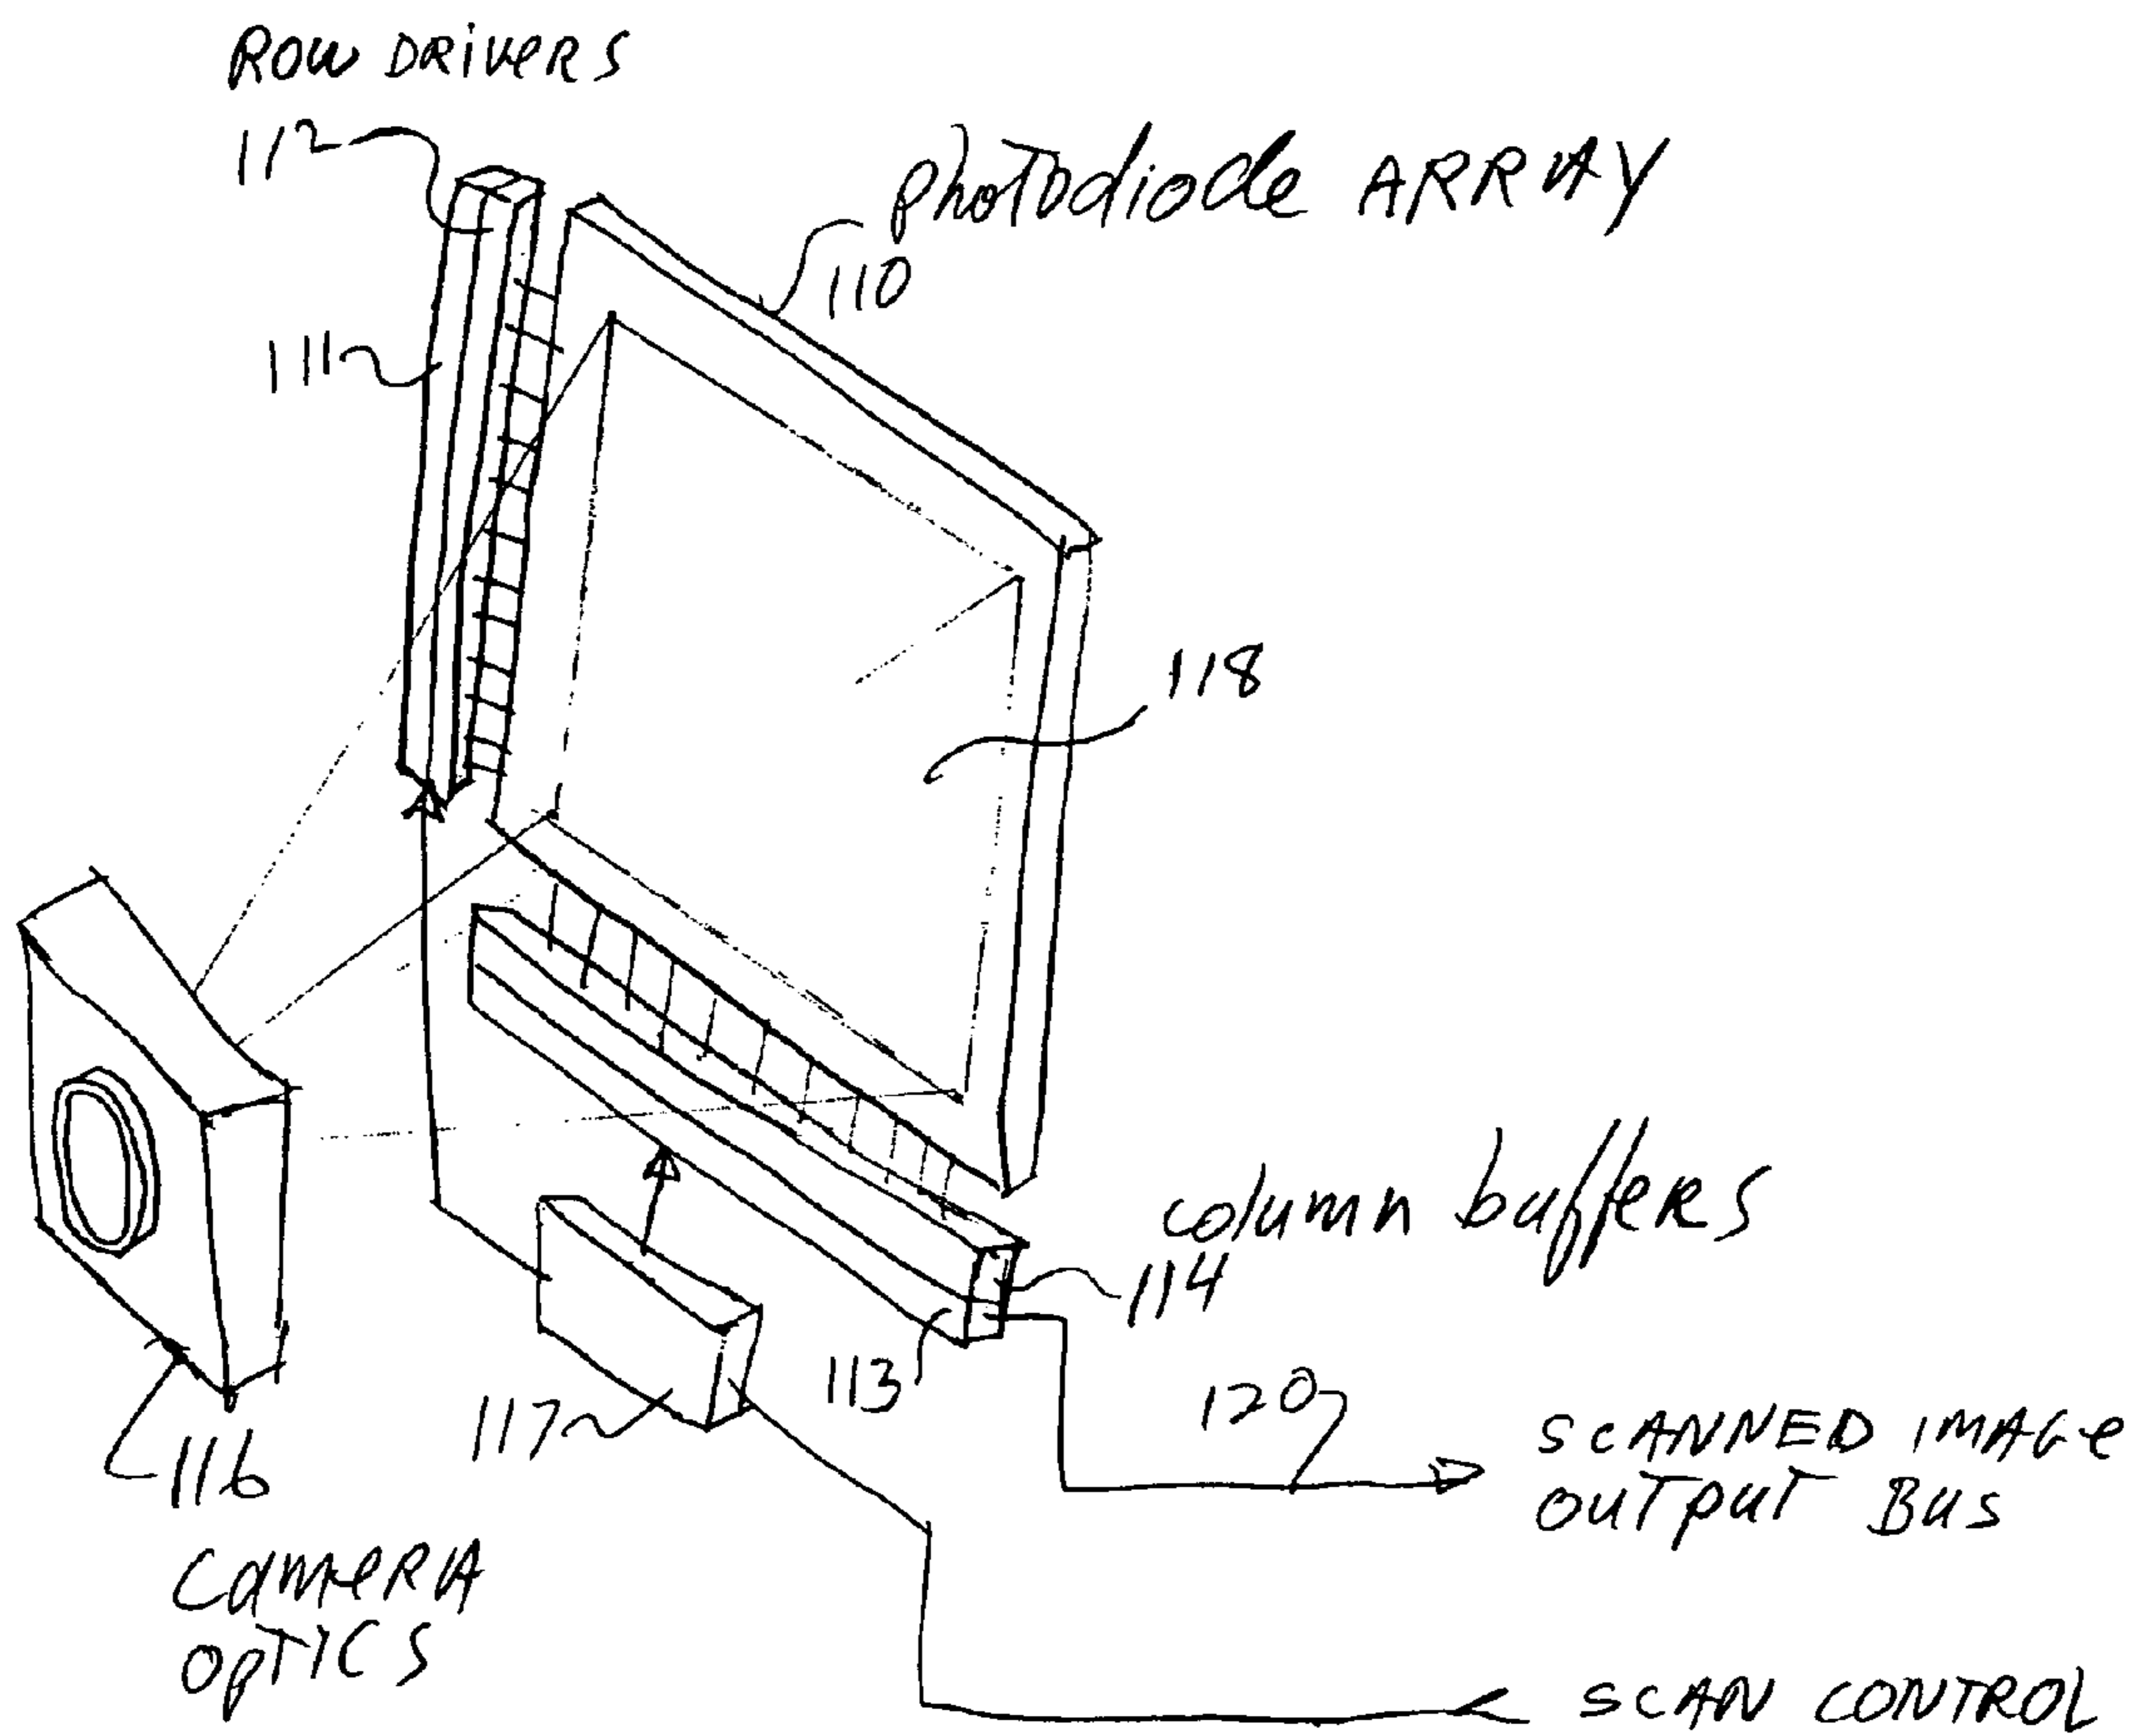 ROW DRIVERS
112
photodiode ARRAY
110
111
118
column buffers
114
113
120
117
SCANNED IMAGE
OUTPUT BUS
116
CAMERA
OPTICS
SCAN CONTROL